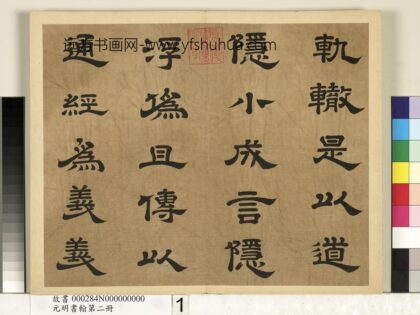 軌轍是以道
隱小成言隱
浮偽且傳以
通經為義義
远西书画网-www.yfshuhua.com
故書 000284N000000000
元明書翰第二冊
1